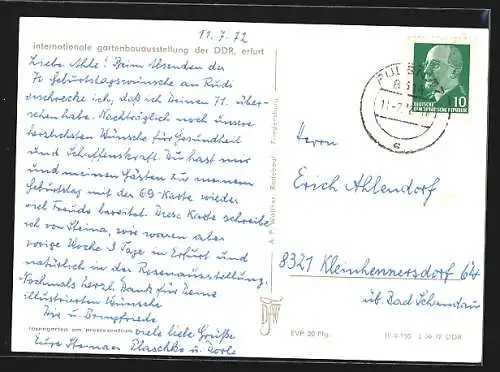 11.7.72
internationale gartenbauausstellung der DDR, erfurt
Liebe Ahle! Beim Absenden der
70 Geburtstagswünsche an Rudi
erschrecke ich, daß ich Deinen 71. über-
sehen habe. Nachträglich noch unsere
herzlichsten Wünsche für Gesundheit
und Schaffenskraft. Du hast mir
und meinen Gästen zu meinem
Geburtstag mit der 69-Karte wieder
viel Freude bereitet. Diese Karte schreibe
ich von Steina, wir waren aber
vorige Woche 3 Tage in Erfurt und
natürlich in der Rosenausstellung.
Nochmals herzl. Dank für Deine
illustrierten Wünsche
Dir u.
rosengarten am
viele liebe Grüße
Eure Steinaer
A. P. Walther Radebeul
PULS
11.-7.72
DEUTSCHE
DEMOKRATISCHE REPUBLIK
10
Herrn
Erich Ahlendorf
8321 Kleinhennersdorf 64
üb. Bad Schandau
EVP 20 Pfg.
DDR